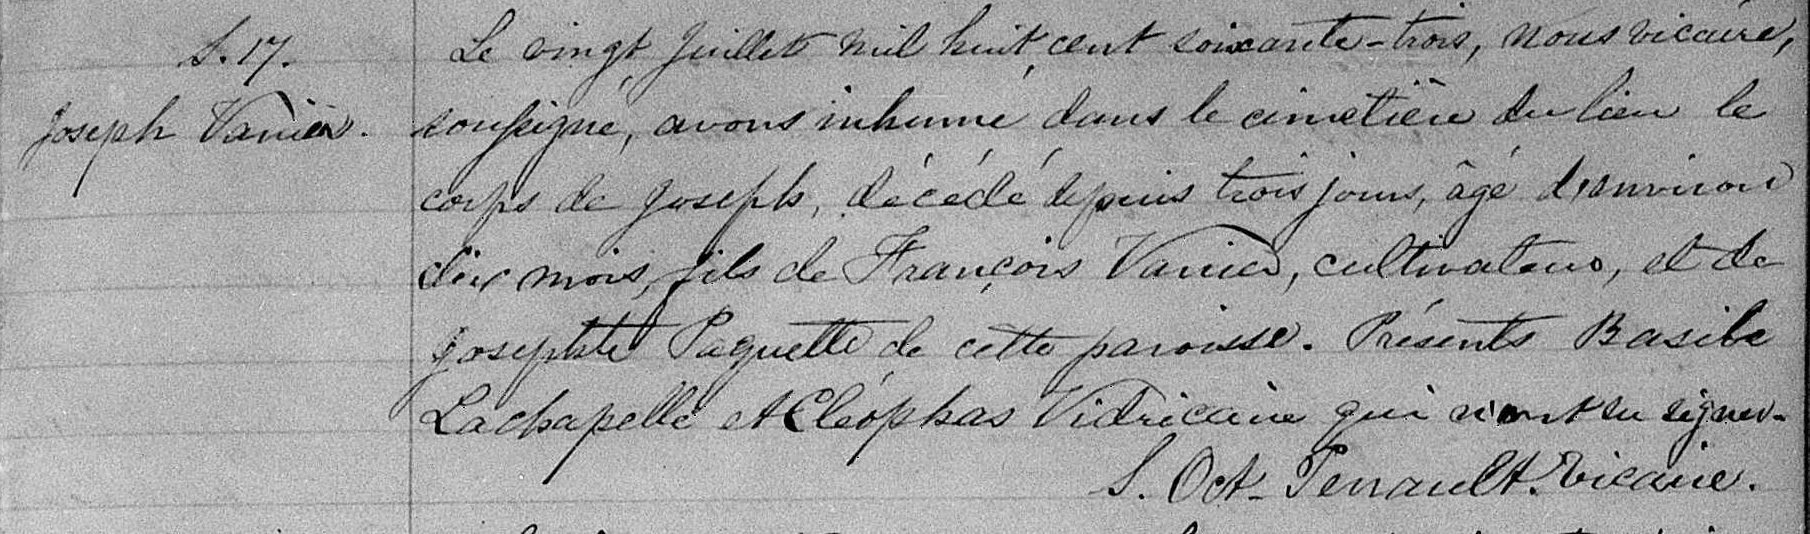 S. 17.
Joseph Vanier.
Le vingt Juillet mil huit cent soixante-trois, nous vicaire,
soussigné, avons inhumé dans le cimetière du lieu le
corps de Joseph, décédé depuis trois jours, âgé d'environ
dix mois, fils de François Vanier, cultivateur, et de
Josephte Paquette de cette paroisse. Présents Basile
Lachapelle et Cléophas Vidricaire qui n'ont su signer.
S. Oct. Perrault. Vicaire.